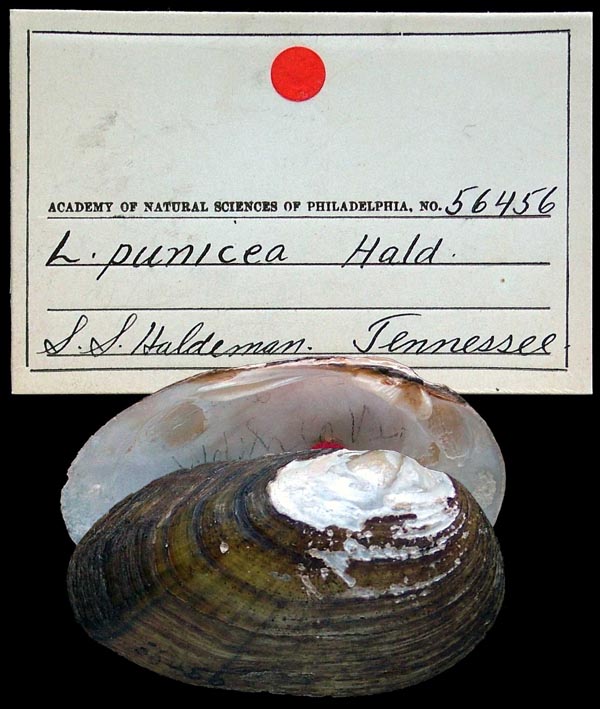 ACADEMY OF NATURAL SCIENCES OF PHILADELPHIA, NO. 56456
L. punicea Hald.
S. S. Haldeman. Tennessee.